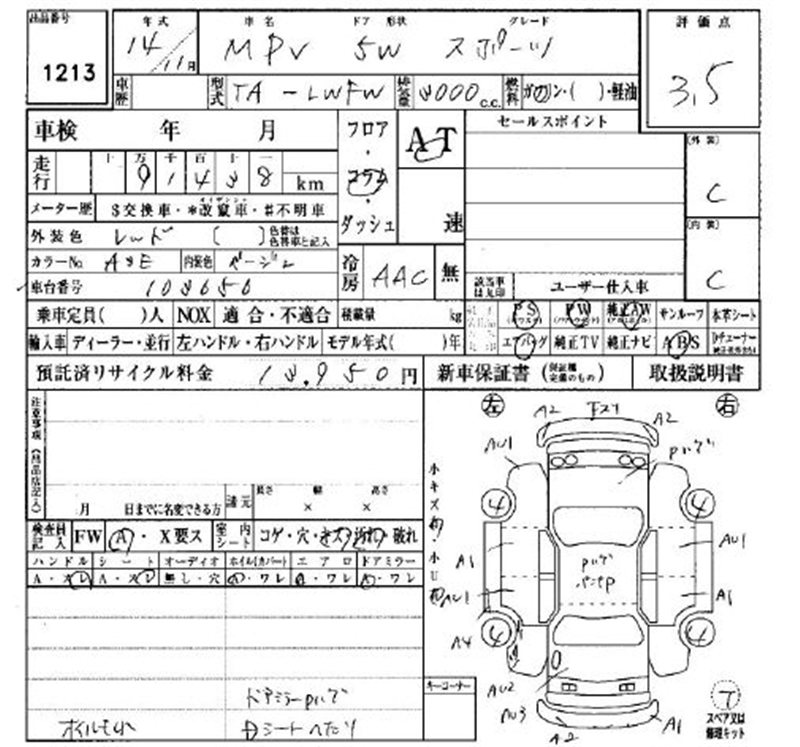 出品番号
1213
年式 車名 ドア 形状 グレード
14/11月 MPV 5W スポーツ
評価点
3.5
車歴 型式 TA-LWFW 排気量 3000 c.c. 燃料 ガソリン・( )・軽油
車検 年 月
フロア・コラム・ダッシュ
AT
速
セールスポイント
(外装)
C
(内装)
C
走行 十 万 千 百 十 一
91438 km
メーター歴 $交換車・*改竄車・#不明車
外装色 レッド ( ) 色替は色替車と記入
カラーNo. A3E 内装色 ベージュ
車台番号 103650
冷房 AAC 無
該当車は丸印 ユーザー仕入車
乗車定員( )人 NOX 適合・不適合 積載量 kg
PS PW 純正AW サンルーフ 本革シート
輸入車 ディーラー・並行 左ハンドル・右ハンドル モデル年式( )年
エアバッグ 純正TV 純正ナビ ABS
預託済リサイクル料金 13,950円
新車保証書 (保証機完備のもの) 取扱説明書
注意事項(出品店記入)
月 日までに名変できる方
諸元 長さ 幅 高さ
× ×
検査員記入 FW A・X要ス 室内シート コゲ・穴・キズ・汚れ・破れ
ハンドル シート オーディオ ホイル(カバー) エアロ ドアミラー
A・スレ A・スレ 無し・穴 A・ワレ A・ワレ A・ワレ
ドアミラーPハゲ
Dシートへたり
左 右
A2 下スリ A2
AU1 Pハゲ
小キズ有
小U有
4 4
A1 AU1
Pハゲ
AU1 A1
A4 4 4
AU2
AU3
A2 A1
キーコーナー
T
スペア又は修理キット